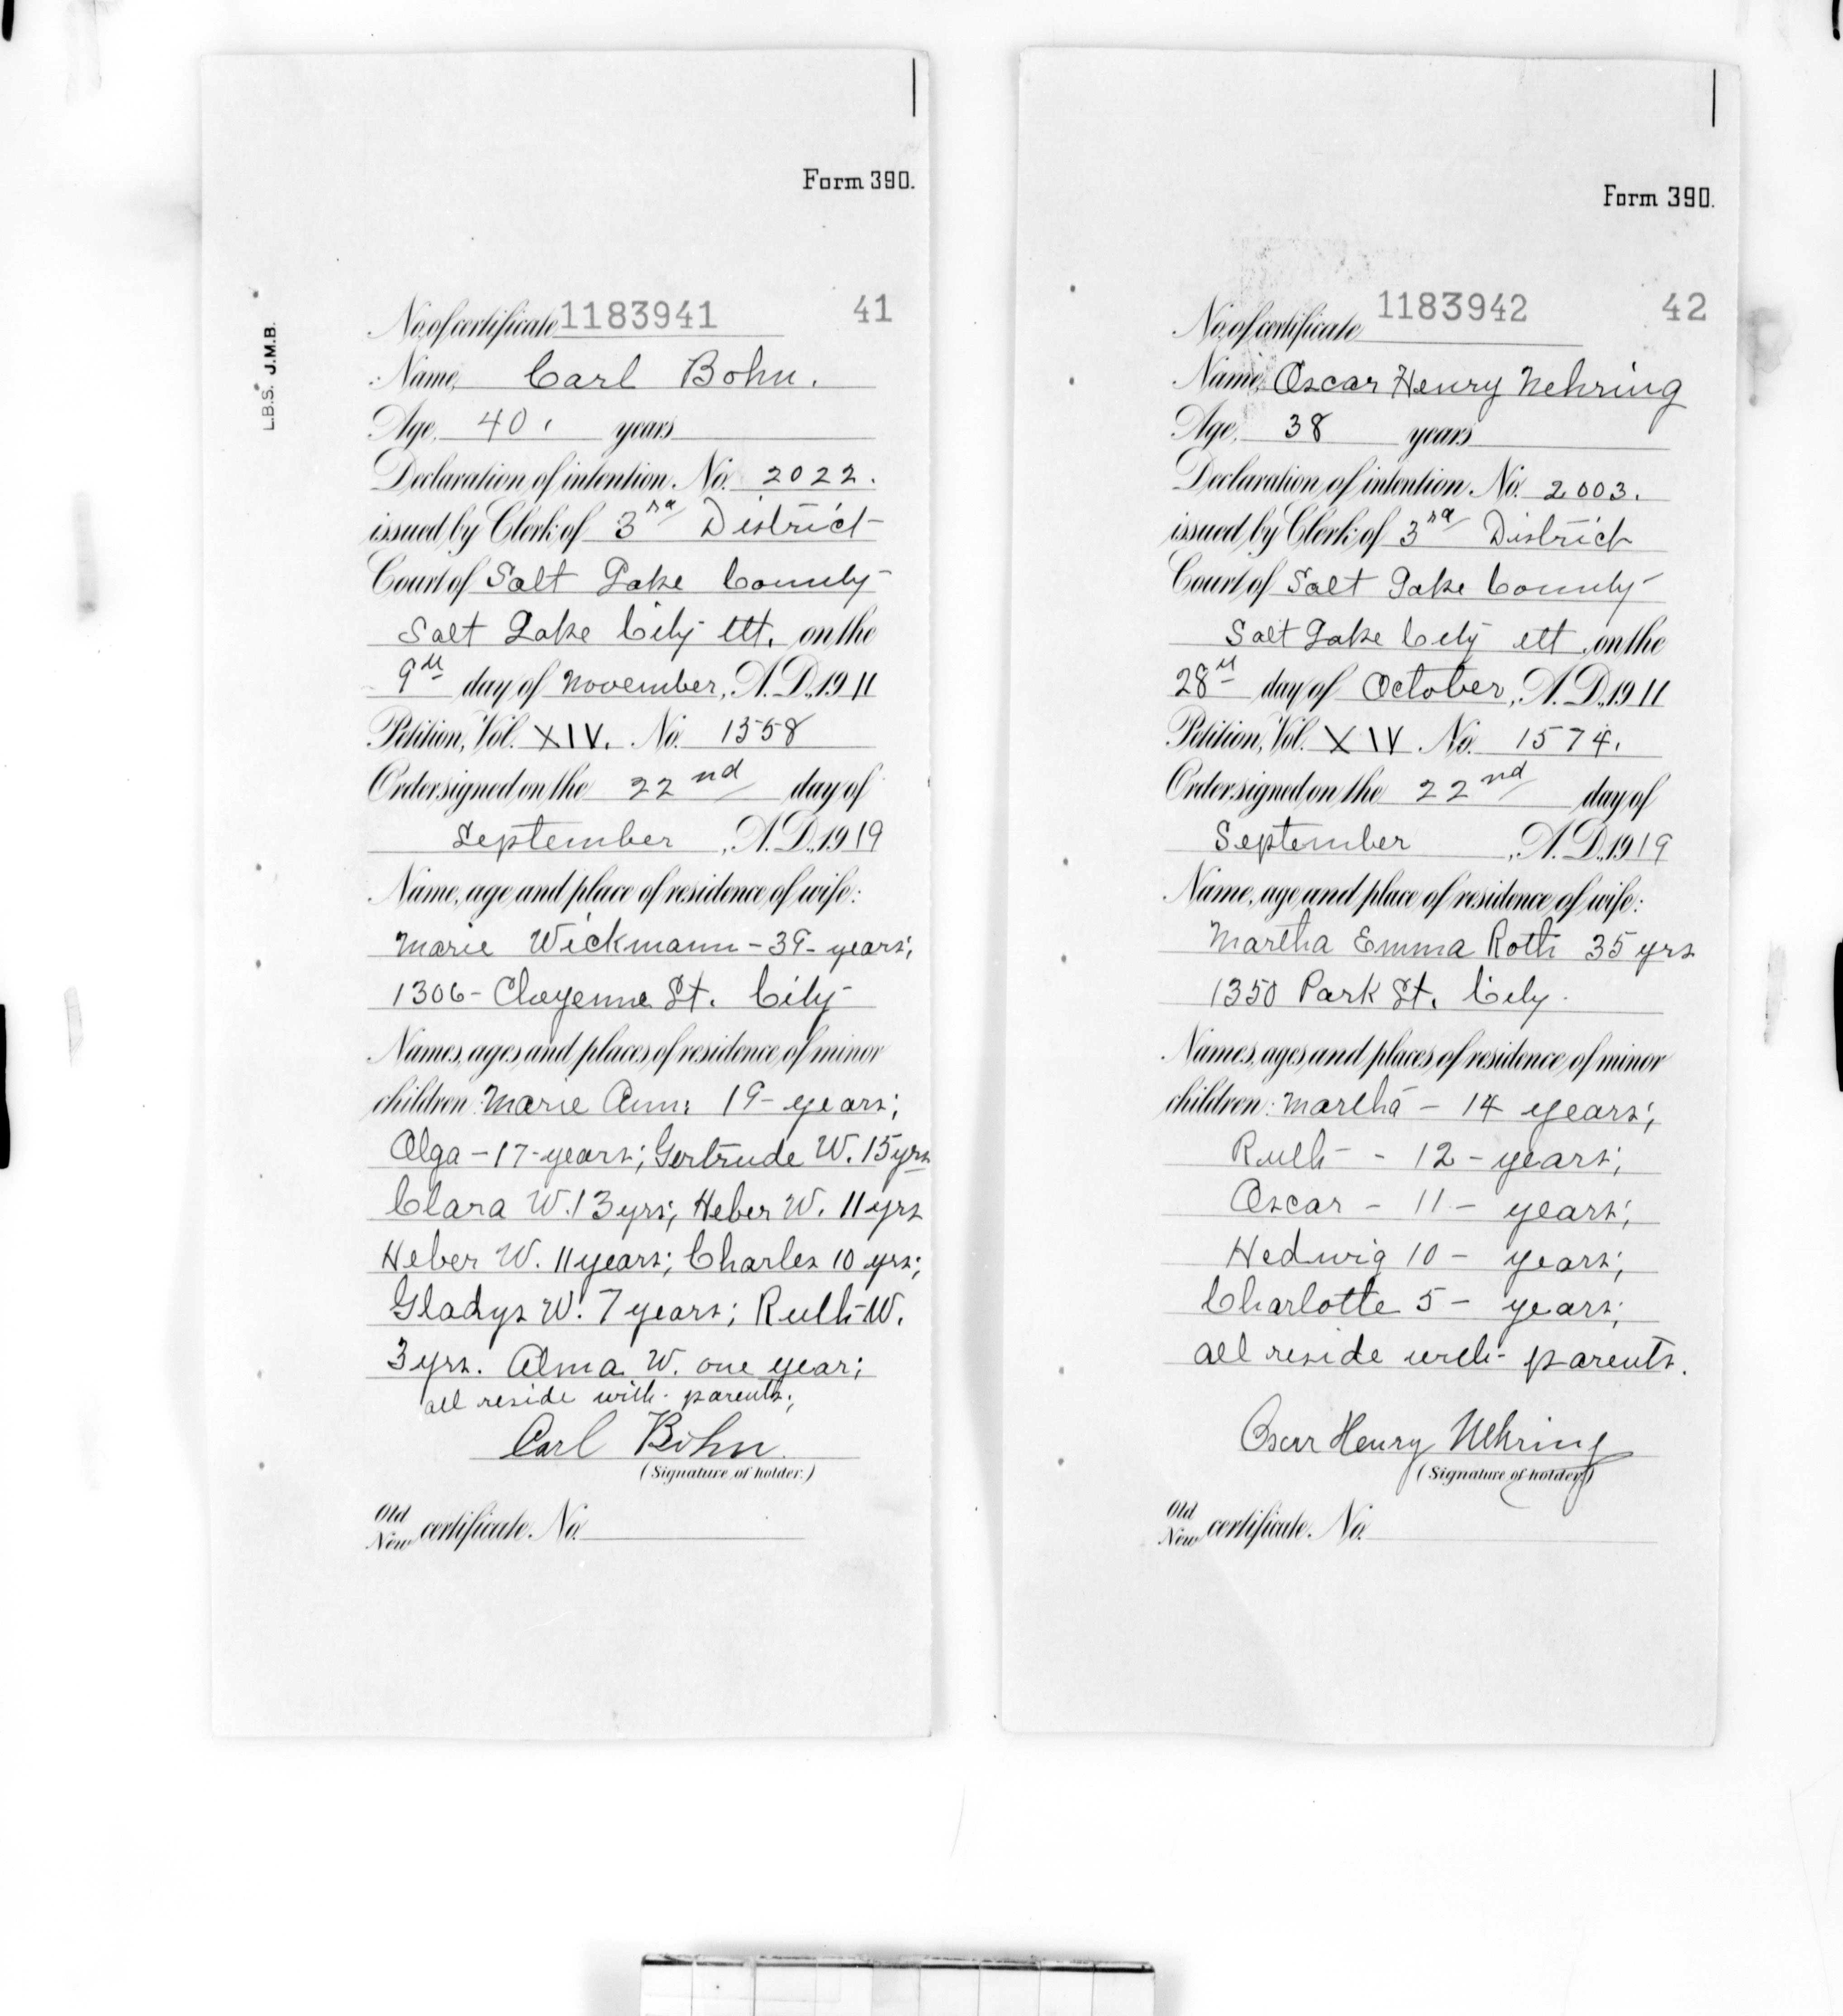 Form 390.
L.B.S. J.M.B.
No. of certificate 1183941 41
Name, Carl Bohn.
Age, 40. years
Declaration of intention. No. 2022.
issued by Clerk of 3rd District
Court of Salt Lake County
Salt Lake City Ut. on the
9th day of November, A.D., 1911
Petition, Vol. XIV. No. 1558
Order signed on the 22nd day of
September, A.D., 1919
Name, age and place of residence of wife:
Marie Wickmann - 39 - years;
1306 - Cheyenne St. City
Names, ages and places of residence of minor
children: Marie Ann: 19 - years;
Olga - 17 - years; Gertrude W. 15 yrs
Clara W. 13 yrs; Heber W. 11 yrs
Heber W. 11 years; Charles 10 yrs;
Gladys W. 7 years; Ruth W.
3 yrs. Alma W. one year;
all reside with parents;
Carl Bohn.
(Signature of holder.)
Old
New certificate. No.
Form 390.
No. of certificate 1183942 42
Name, Oscar Henry Nehring
Age, 38 years
Declaration of intention. No. 2003.
issued by Clerk of 3rd District
Court of Salt Lake County
Salt Lake City Ut, on the
28th day of October, A.D., 1911
Petition, Vol. XIV No. 1574.
Order signed on the 22nd day of
September, A.D., 1919
Name, age and place of residence of wife:
Martha Emma Roth 35 yrs
1350 Park St. City.
Names, ages and places of residence of minor
children: Martha - 14 years;
Ruth - - 12 - years;
Oscar - 11 - years;
Hedwig 10 - years;
Charlotte 5 - years;
all reside with parents.
Oscar Henry Nehring
(Signature of holder.)
Old
New certificate. No.